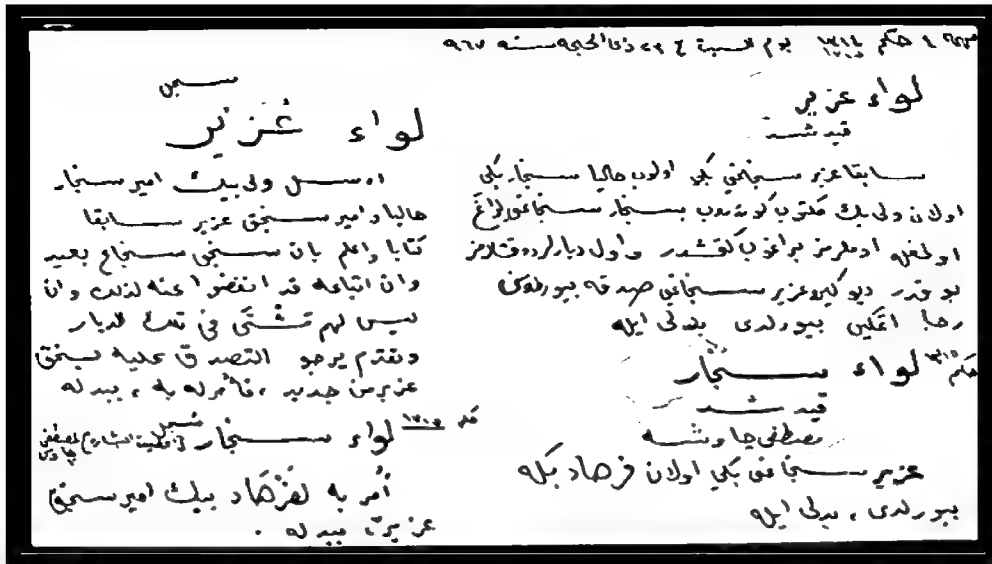 حكم يوم السبت ذى الحجه سنه ٩٦٧
لواء عزير
قيد شد
سابقا عزير سنجاغى بكى اولوب حاليا سنجار بكى
اولان ولى بك مكتوب كوندروب سنجار سنجاغى ايراغ
اولمغله ادملرمز براغوب كتمشدر واول ديارلرده قشلامز
يوقدر ديو كيرو عزير سنجاغى صدقه بيورلمق
رجا اتمكين بيورلدى بدلى ايله
حكم ١٣١٥ لواء سنجار
قيد شد
مصطفى چاوشه
عزير سنجاغى بكى اولان فرهاد بكه
بيورلدى ، بدلى ايله
سجل
لواء عُزير
ارسل ولى بيك امير سنجار
حاليا وامير سنجق عزير سابقا
كتابا واعلم بان سنجق سنجار بعيد
وان اتباعه قد انفضوا عنه لذلك وان
ليس لهم مَشْتَى فى تلك الديار
ويرجو التصدق عليه بسنجق
عزير من جديد ، فأمر له به ، ببدله
لواء سنجار سُجل مصطفى چاوش
أُمر به لفَرْهَاد بيك امير سنجق
عزير ، ببدله .